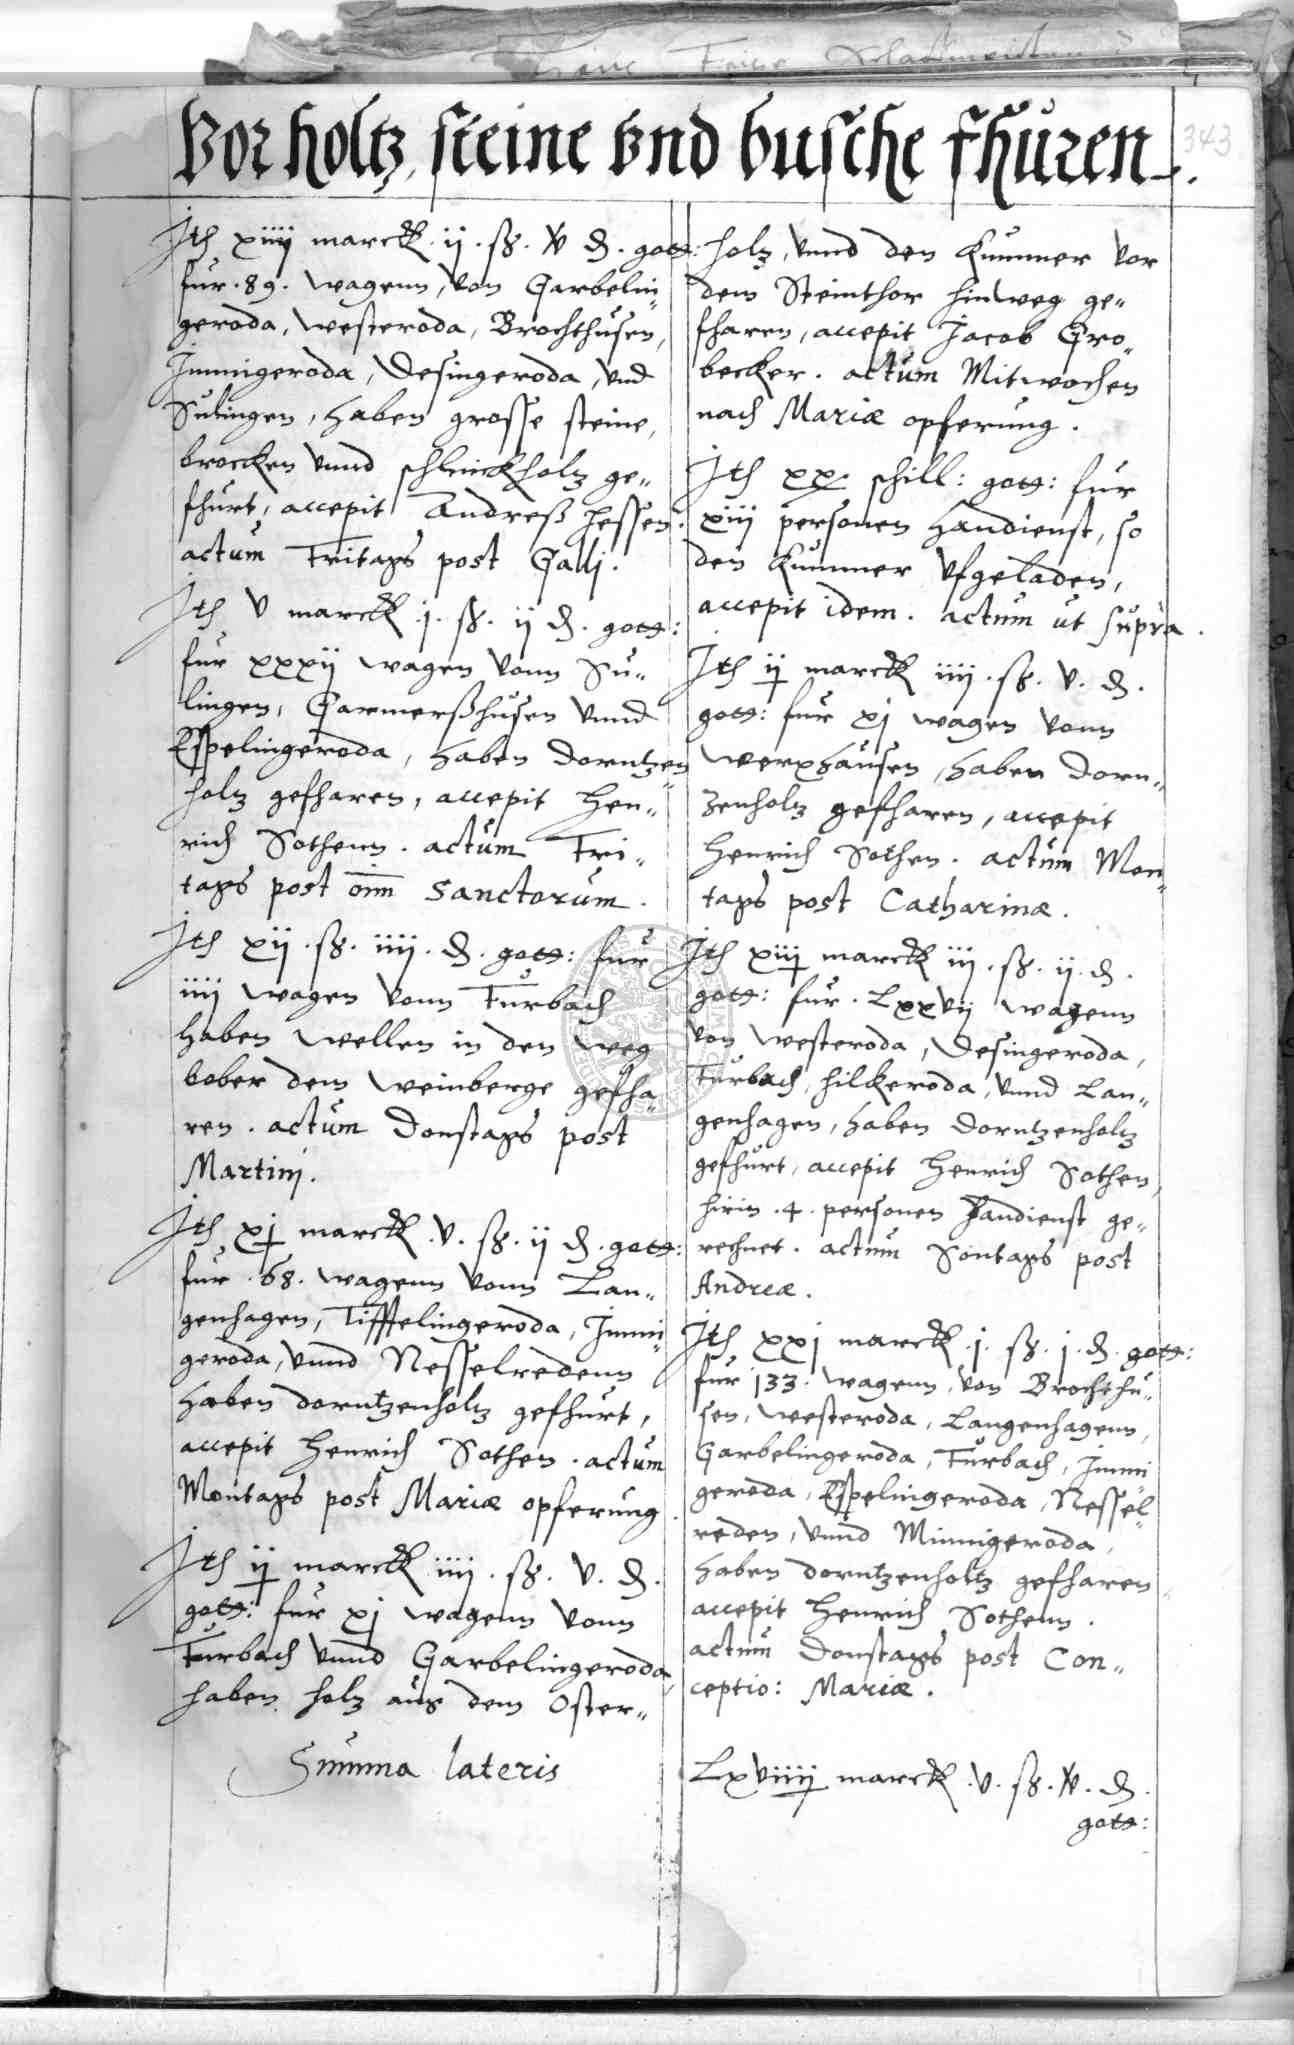 Vor holtz, steine Vnd busche fhuren.
343
Jth xiiij marck .ij. sß. v d. gott:
fur .89. wagenn, von Garbelin„
geroda, westeroda, Brochthusen,
Jmmigeroda, Desingeroda, vnd
Sulingen, haben grosse steine,
brocken vnnd schlinckholtz ge„
fhurt, accepit Andreß Hessen.
actum Fritags post Galli.
Jth v marck .j. sß. ij d. gott:
fur xxxij wagen vonn Su„
lingen, Garmerßhusen vnnd
Espelingeroda, haben dorntzen
holtz gefharen, accepit Hen„
rich Sothenn. actum Fri„
tags post om̄ sanctorum.
Jth xij .sß. iiij. d. gott: fur
iiij wagen vonn Furbach
haben wellen in den weg
bober dem weinberge gefha„
ren. actum Donstags post
Martini.
Jth xj marck .v. sß. ij d. gott:
fur .68. wagenn vonn Lan„
genhagen, Tifftelingeroda, Jmmi„
geroda, vnnd Nesselredenn
haben dorntzenholtz gefhurt,
accepit Henrich Sothen. actum
Montags post Mariæ opferung.
Jth ij marck iiij. sß. v. d.
gott: fur xj wagenn vonn
Furbach vnnd Garbelingeroda,
haben holtz aus dem Oster„
Summa lateris
holtz, vnnd den Kummer vor
dem Steinthor hinweg ge„
fharen, accepit Jacob Gro„
becker. actum Mitwochen
nach Mariæ opferung.
Jth xx schill: gott: fur
xiij personen Handienst, so
den Kummer vfgeladen,
accepit idem. actum ut supra.
Jth ij marck iiij. sß. v. d.
gott: fur xj wagen vonn
werxhausen, haben dorn„
zenholtz gefharen, accepit
Henrich Sothen. actum Mon„
tags post Catharinæ.
Jth xiij marck iij. sß. ij. d.
gott: fur .Lxxvij wagenn
von westeroda, Desingeroda,
Furbach, Hilkeroda, vnnd Lan„
genhagen, haben dorntzenholtz
gefhurt, accepit Henrich Sothen,
hirin .4. personen Handienst ge„
rechnet. actum Sontags post
Andreæ.
Jth xxj marck .j. sß. j. d. gott:
fur 133. wagenn, von Brochthu„
sen, westeroda, Langenhagenn,
Garbelingeroda, Furbach, Jmmi
geroda, Espelingeroda, Nessel„
reden, vnnd Minnigeroda,
haben dorntzenholtz gefharen
accepit Henrich Sothenn.
actum Donstags post Con„
ceptio: Mariæ.
Lxviiij marck .v. sß. v. d.
gott: